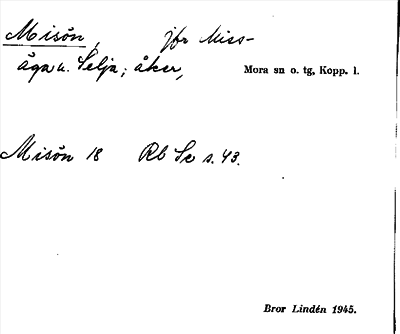 Misön, jfr Miss-
åga u. Selja; åker,
Mora sn o. tg, Kopp. l.
Misön 18 Rb Se s. 43.
Bror Lindén 1945.